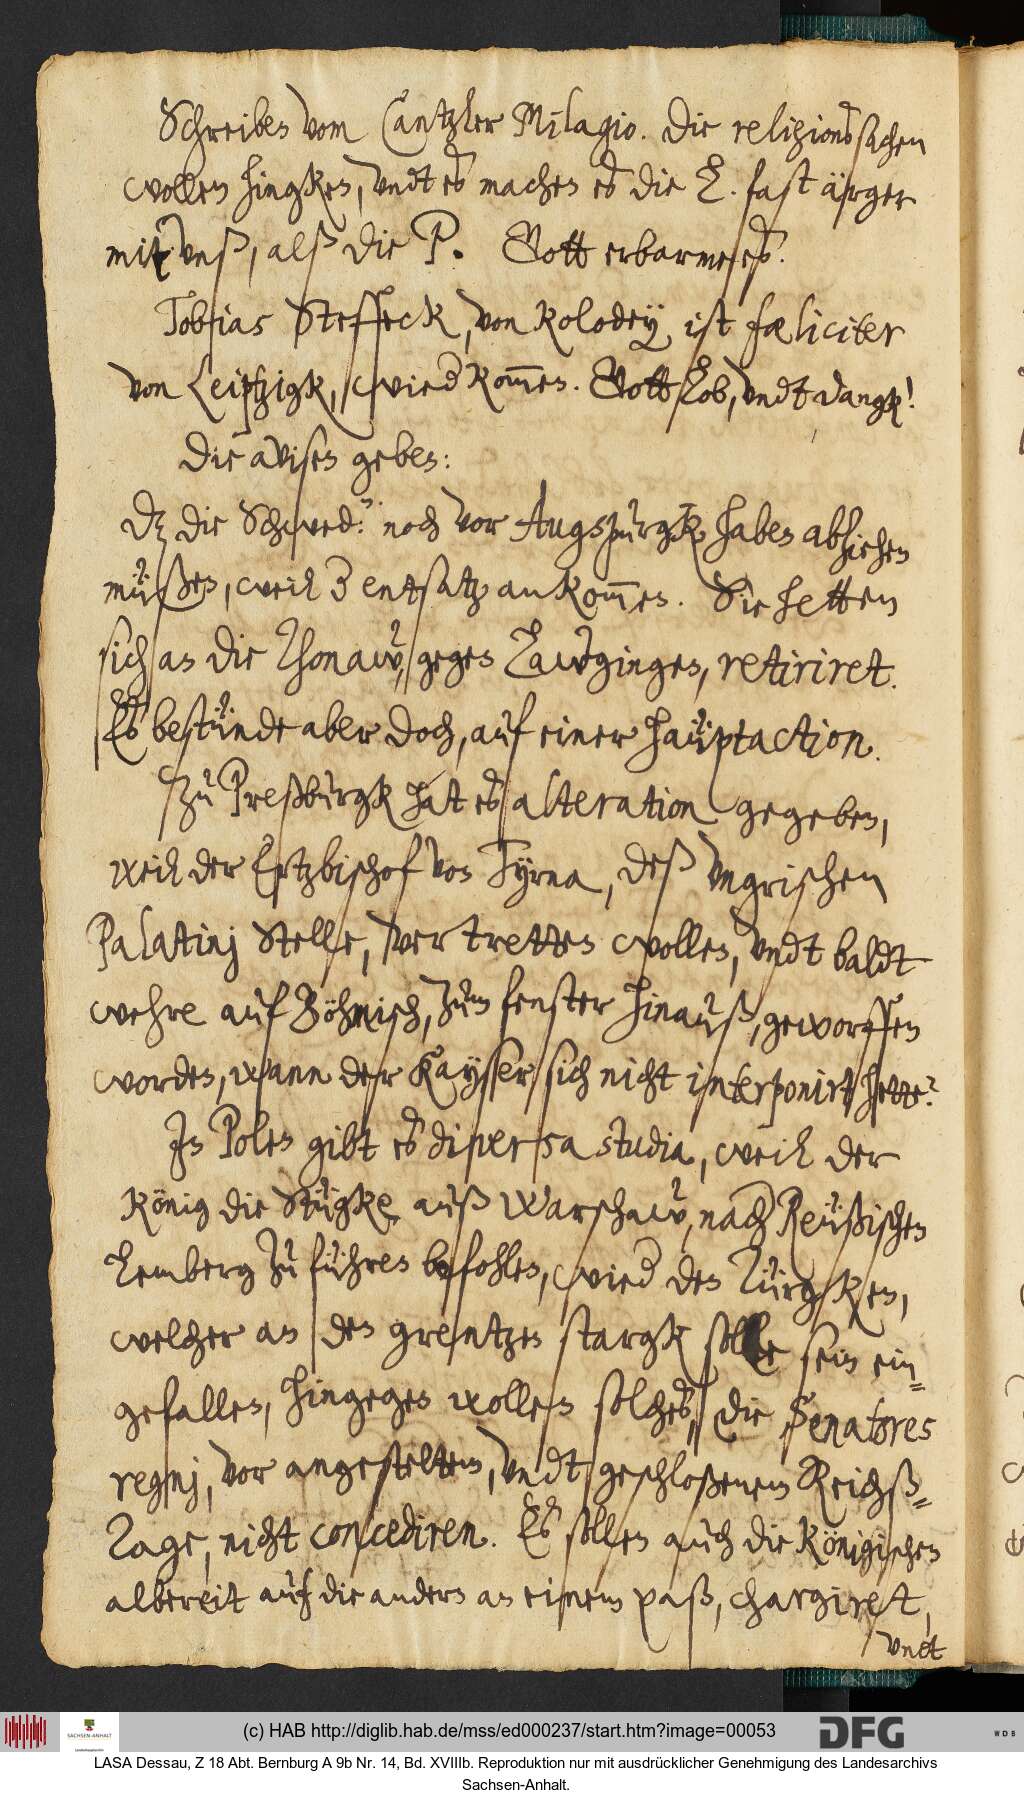 Schreiben vom Cantzler Milagio. Die religionssachen
wollen hingken, undt es machen es die L. fast ärger
mit unß, alß die P. Gott erbarme es.
Tobias Steffeck, von Kolodey ist fœliciter
von Leiptzigk, wied kom̄en. Gott lob, undt dangk!
Die avisen geben:
Dz die Schwed: noch vor Augspurgk haben abziehen
müßen, weil der entsatz ankom̄en. Sie hetten
sich an die Thonaw, gegen Lawginghen, retiriret.
Es bestünde aber doch, auf einer hauptaction.
Zu Preßburgk hat es alteration gegeben,
weil der Ertzbischof von Tyrna, deß ungrischen
Palatinj stelle, vertretten wollen, undt baldt
wehre auf Böhmisch, zum fenster hinauß, geworffen
worden, wann der Kayser sich nicht interponirt hette?
In Polen gibt es diversa studia, weil der
König die Stügke auß Warschaw, nach Reußischen
Lemberg zu führen befohlen, wied den Türgken,
welcher an den grentzen stargk solle sein ein=
gefallen, hingegen wollen solches, die Senatores
regnj, vor angesteltem, undt geschloßenem Reichß=
Tage, nicht concediren. Es sollen auch die Königischen
albereit auf die andern an einem paß, chargiret,
undt
(c) HAB http://diglib.hab.de/mss/ed000237/start.htm?image=00053
SACHSEN-ANHALT
DFG
WDB
LASA Dessau, Z 18 Abt. Bernburg A 9b Nr. 14, Bd. XVIIIb. Reproduktion nur mit ausdrücklicher Genehmigung des Landesarchivs
Sachsen-Anhalt.